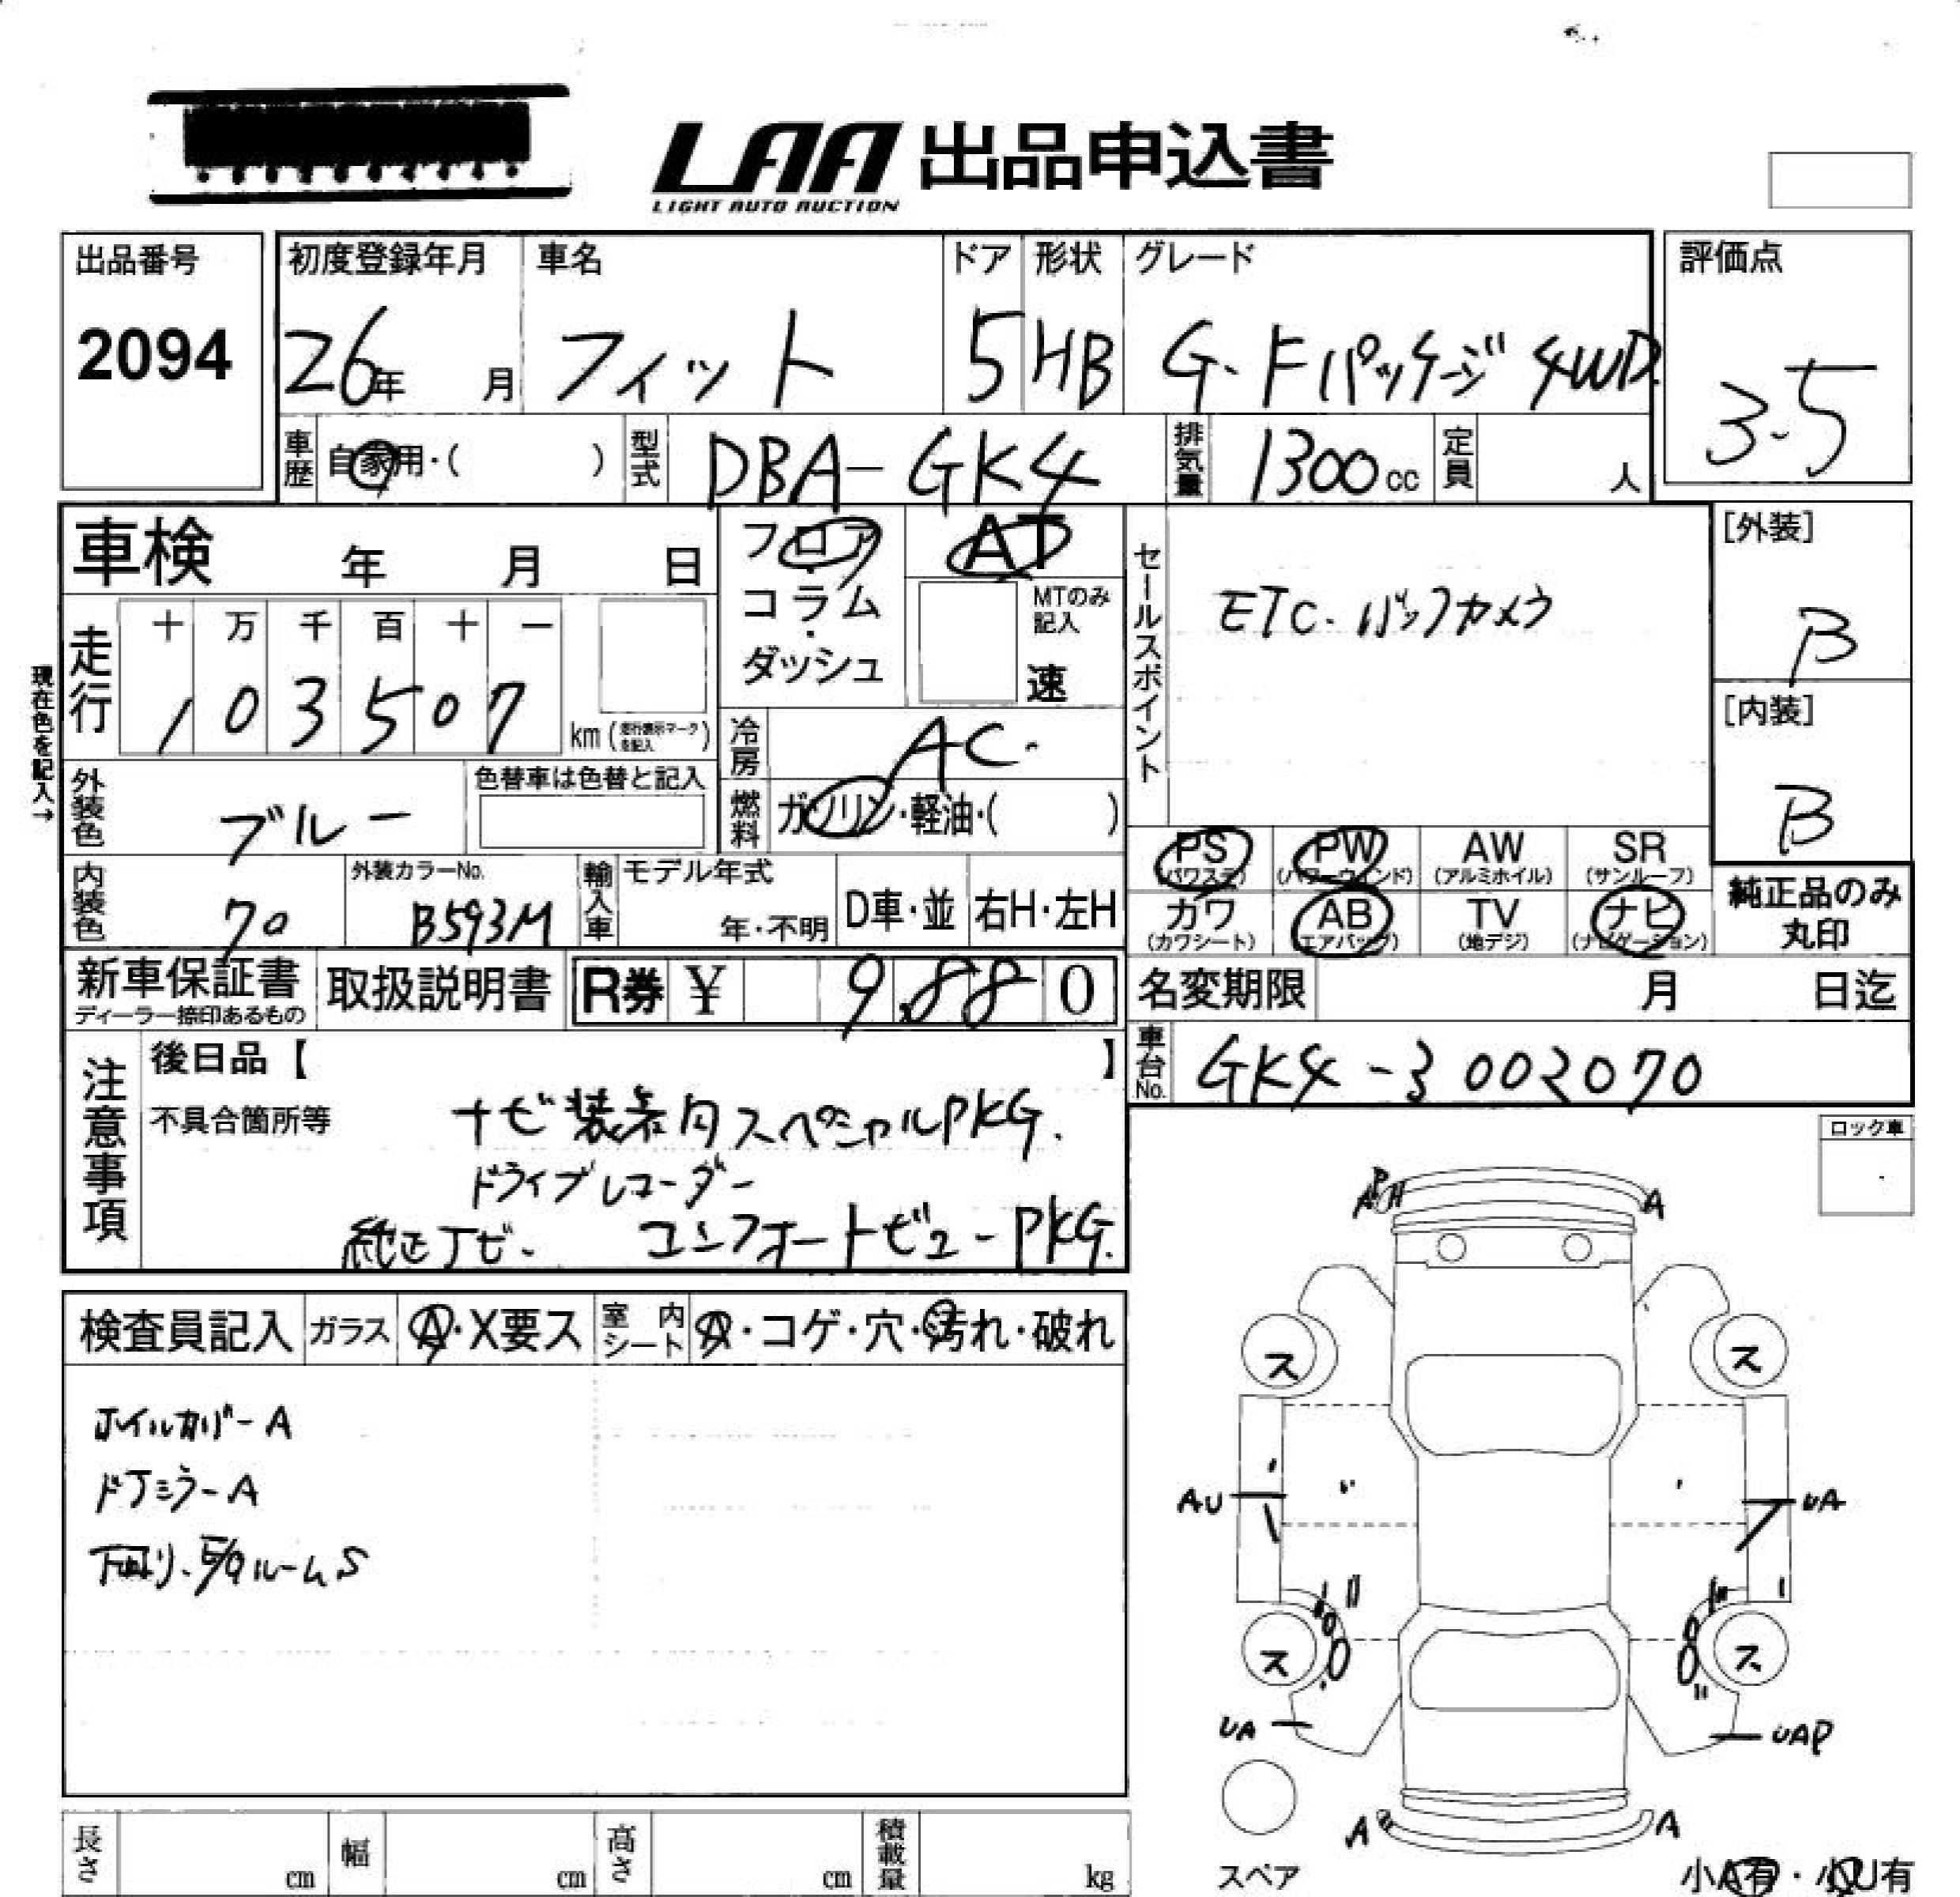 LAA 出品申込書
LIGHT AUTO AUCTION
出品番号
2094
初度登録年月
26年 月
車名
フィット
ドア
5
形状
HB
グレード
G・Fパッケージ 4WD
評価点
3.5
車歴
自家用・( )
型式
DBA-GK4
排気量
1300cc
定員
人
車検 年 月 日
フロア・コラム・ダッシュ
AT
MTのみ記入
速
セールスポイント
ETC・バックカメラ
[外装]
B
[内装]
B
現在色を記入→
走行
十 万 千 百 十 一
1 0 3 5 0 7
km (走行表示マークを記入)
冷房
AC
外装色
ブルー
色替車は色替と記入
燃料
ガソリン・軽油・( )
PS (パワステ)
PW (パワーウィンド)
AW (アルミホイル)
SR (サンルーフ)
カワ (カワシート)
AB (エアバッグ)
TV (地デジ)
ナビ (ナビゲーション)
純正品のみ丸印
内装色
外装カラーNo.
B593M
輸入車
モデル年式
年・不明
D車・並
右H・左H
新車保証書
ディーラー捺印あるもの
取扱説明書
R券 ¥ 9,880
名変期限 月 日迄
車台No.
GK4-3002070
注意事項
後日品【 】
不具合箇所等
ナビ装着用スペシャルPKG.
ドライブレコーダー
純正ナビ・ コンフォートビューPKG.
ロック車
検査員記入
ガラス
A・X要ス
室内シート
A・コゲ・穴・汚れ・破れ
ホイルカバーA
ドアミラーA
下回り・E/GルームS
A P H
A
ス
ス
AU
UA
ス
ス
UA
UAP
A
A
スペア
小A有・小U有
長さ cm
幅 cm
高さ cm
積載量 kg